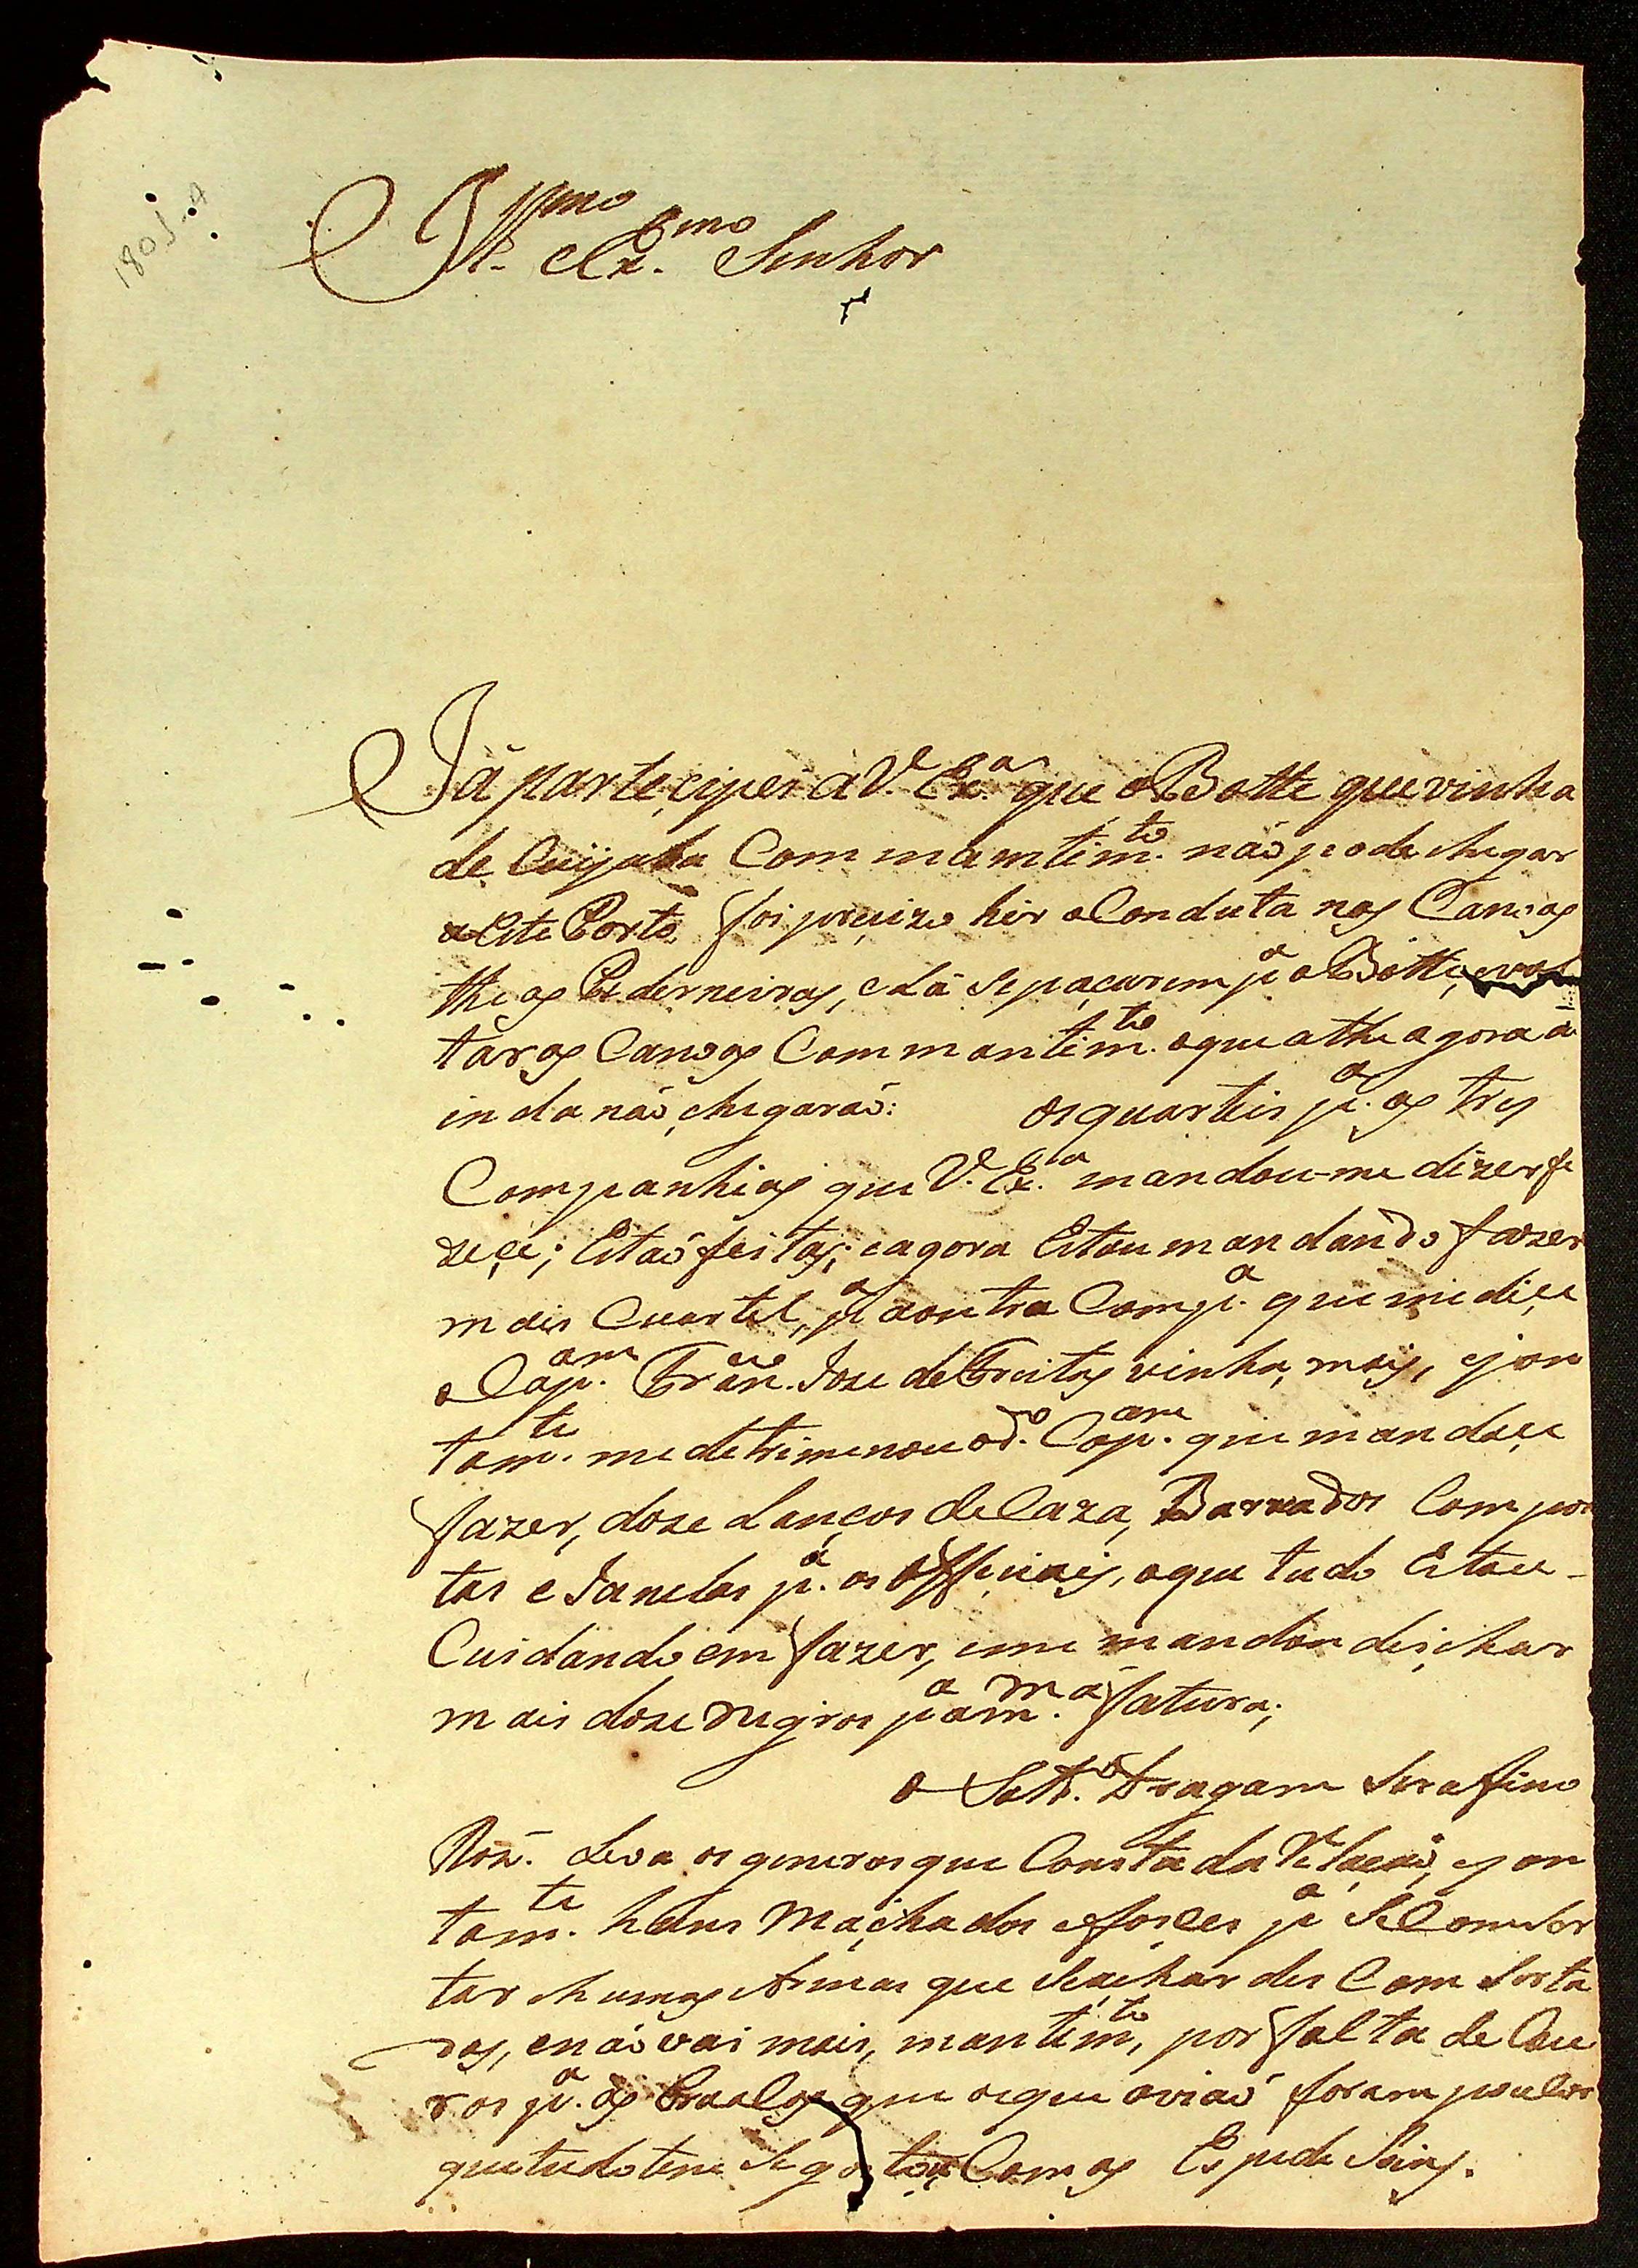 1801-4
Ill.mo e Ex.mo Senhor
Já partecipei a V. Ex.a que o Botte que vinha
de Cuijaba Com mamtim.to não pode chegar
a Este Porto, foi preçizo hir a Conduta nas Canoas
the as Pederneiras, e Lá se paçarem p.a o Botte, e vol
tar as Canoas Com mantim.to o que athe agora a
inda não chegarão: os quarteis p.a as tres
Companhias que V. Ex.a mandou-me dizer fi
zeçe; Estão feitas; e agora Estou mandando fazer
mais Cuartel, p.a a outra Comp.a que me diçe
o Cap.am Fran.co Joze de Freitas vinha mais, e jon
tam.te me detriminou o d.o Cap.am que mandaçe
fazer, doze Lanços de Caza, Barreados Com por
tas e Janelas p.a os Offiçiais, o que tudo Estou-
Cuidando em fazer, e me mandou deichar
mais doze negros p.a a m.ma fatura;
O Sold.o Dragam Serafino
Roiz. Leva os generos que Consta da Relação, e jon
tam.te huns Machados e foices p.a Se Consser
tar e humas Armas que Se achar des Com Serta
das, e não vai mais, mantim.to, por falta de Cou
ros p.a as que os que avião foram poucos
que tudo tem Se gastou Com as Espedeçõins.